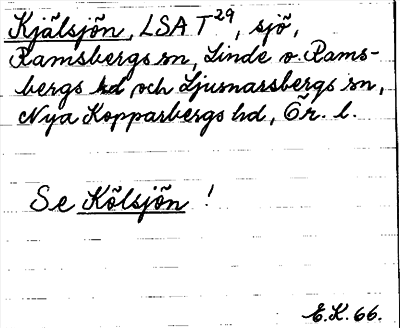 Kjälsjön, LSA T29, sjö,
Ramsbergs sn, Linde o. Rams-
bergs hd och Ljusnarsbergs sn,
Nya Kopparbergs hd, Ör. l.
Se Kölsjön !
E.K. 66.